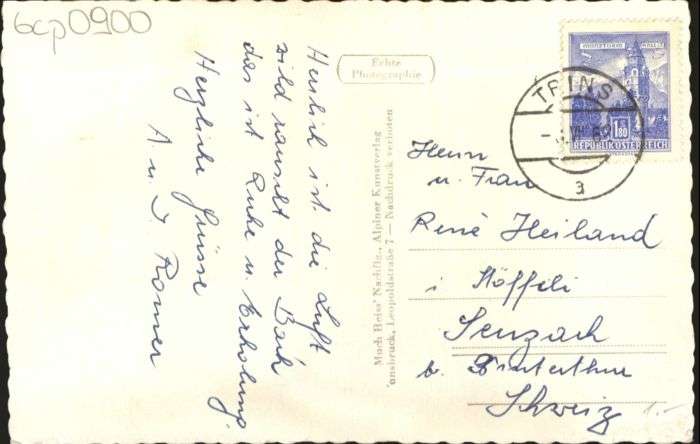 6cp0900
Herrlich ist die Luft
wild rauscht der Bach
das ist Ruhe u. Erholung.
Herzliche Grüsse
A. u. J. Romer
Echte
Photographie
Much Heiss' Nachflg., Alpiner Kunstverlag
Innsbruck, Leopoldstraße 7 — Nachdruck verboten
MÜNZTURM HALL i. T.
S 1.80
REPUBLIK ÖSTERREICH
TRINS
a
Herrn
u. Frau
René Heiland
i Stöffeli
Seuzach
b. Winterthur
Schweiz
1.-